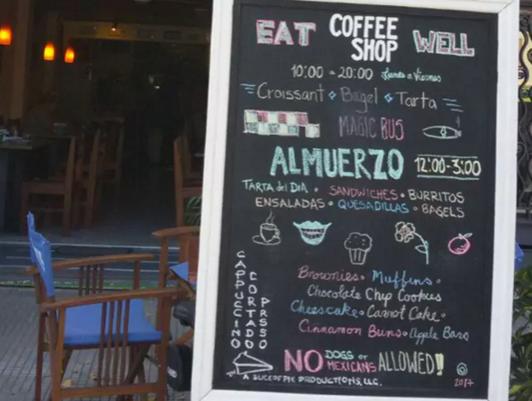 EAT COFFEE SHOP WELL
10:00 - 20:00 Lunes a Viernes
Croissant Bagel Tarta
MAGIC BUS
ALMUERZO 12:00-3:00
TARTA del DIA • SANDWICHES • BURRITOS
ENSALADAS • QUESADILLAS • BAGELS
Brownies • Muffins •
Chocolate Chip Cookies
Cheescake • Carrot Cake •
Cinnamon Buns • Apple Bars
CAPPUCCINO
CORTADO
NO DOGS or MEXICANS ALLOWED!!
A SLICE OF PIE PRODUCTIONS, LLC.
2017